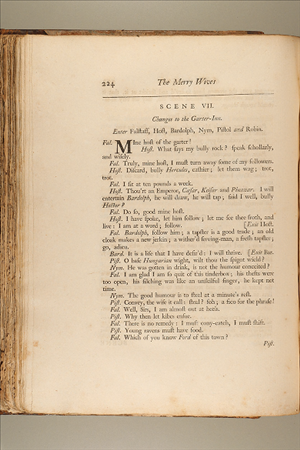 224 The Merry Wives
SCENE VII.
Changes to the Garter-Inn.
Enter Falstaff, Host, Bardolph, Nym, Pistol and Robin.
Fal. MIne host of the garter!
Host. What says my bully rock? speak schollarly,
and wisely.
Fal. Truly, mine host, I must turn away some of my followers.
Host. Discard, bully Hercules, cashier; let them wag; trot,
trot.
Fal. I sit at ten pounds a week.
Host. Thou'rt an Emperor, Cæsar, Keisar and Pheazar. I will
entertain Bardolph, he shall draw, he shall tap; said I well, bully
Hector?
Fal. Do so, good mine host.
Host. I have spoke, let him follow; let me see thee froth, and
live: I am at a word; follow. [Exit Host.
Fal. Bardolph, follow him; a tapster is a good trade; an old
cloak makes a new jerkin; a wither'd serving-man, a fresh tapster;
go, adieu.
Bard. It is a life that I have desir'd: I will thrive. [Exit Bar.
Pist. O base Hungarian wight, wilt thou the spigot wield?
Nym. He was gotten in drink, is not the humour conceited?
Fal. I am glad I am so quit of this tinderbox; his thefts were
too open, his filching was like an unskilful singer, he kept not
time.
Nym. The good humour is to steal at a minute's rest.
Pist. Convey, the wife it call: steal? foh; a fico for the phrase!
Fal. Well, Sirs, I am almost out at heels.
Pist. Why then let kibes ensue.
Fal. There is no remedy: I must cony-catch, I must shift.
Pist. Young ravens must have food.
Fal. Which of you know Ford of this town?
Pist.